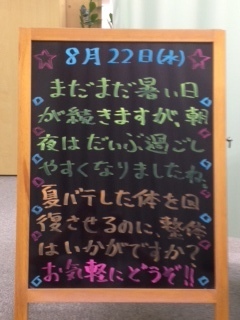 8月22日(水)
まだまだ暑い日
が続きますが、朝
夜はだいぶ過ごし
やすくなりましたね。
夏バテした体を回
復させるのに、整体
はいかがですか?
お気軽にどうぞ!!